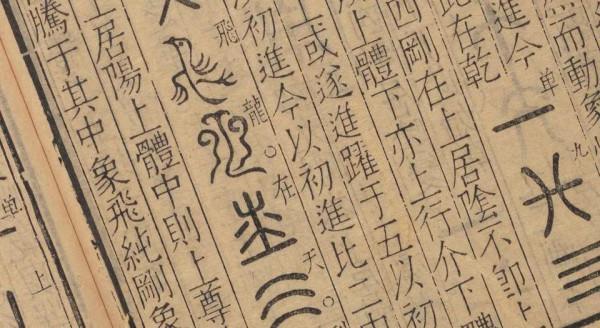 而動象
進今
单一
九九
四
此在乾
四剛在上居陰不即上
體下亦上行介下體
上或遂進躍于五以初
初進今以初進比二中
飛飛
龍龍
在在
天
上居陽上體中則上尊
騰于其中象飛純剛象
单
上